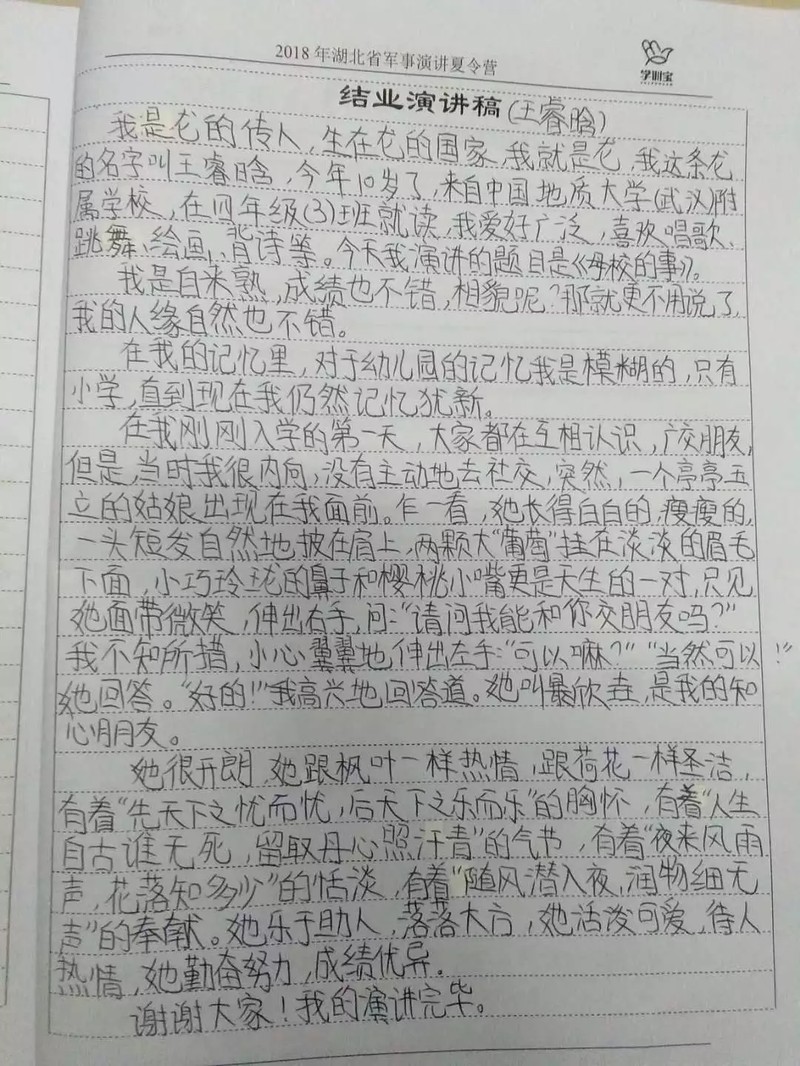 2018年湖北省军事演讲夏令营
学训宝
结业演讲稿(王睿晗)
我是龙的传人,生在龙的国家,我就是龙,我这条龙
的名字叫王睿晗,今年10岁了,来自中国地质大学(武汉)附
属学校,在四年级(3)班就读,我爱好广泛,喜欢唱歌、
跳舞、绘画、背诗等。今天我演讲的题目是《母校的事》。
我是自来熟,成绩也不错,相貌呢?那就更不用说了,
我的人缘自然也不错。
在我的记忆里,对于幼儿园的记忆我是模糊的,只有
小学,直到现在我仍然记忆犹新。
在我刚刚入学的第一天,大家都在互相认识,广交朋友,
但是,当时我很内向,没有主动地去社交,突然,一个亭亭玉
立的姑娘出现在我面前。乍一看,她长得白白的,瘦瘦的,
一头短发自然地披在肩上,两颗大“葡萄”挂在淡淡的眉毛
下面,小巧玲珑的鼻子和樱桃小嘴更是天生的一对,只见
她面带微笑,伸出右手,问:“请问我能和你交朋友吗?”
我不知所措,小心翼翼地伸出左手:“可以嘛?”“当然可以!”
她回答。“好的!”我高兴地回答道。她叫欣,是我的知
心朋友。
她很开朗,她跟枫叶一样热情,跟荷花一样圣洁,
有着“先天下之忧而忧,后天下之乐而乐”的胸怀,有着“人生
自古谁无死,留取丹心照汗青”的气节,有着“夜来风雨
声,花落知多少”的恬淡,有着“随风潜入夜,润物细无
声”的奉献。她乐于助人,落落大方,她活泼可爱,待人
热情,她勤奋努力,成绩优异。
谢谢大家!我的演讲完毕。